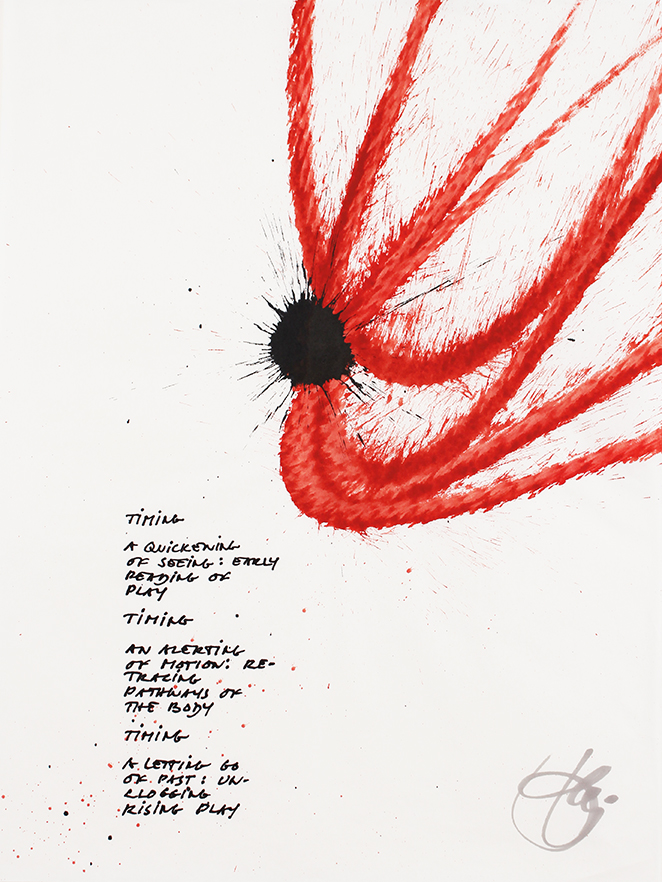 TIMING
A QUICKENING
OF SEEING: EARLY
READING OF
PLAY
TIMING
AN ALERTING
OF MOTION: RE-
TRACING
PATHWAYS OF
THE BODY
TIMING
A LETTING GO
OF PAST: UN-
CLOGGING
RISING PLAY